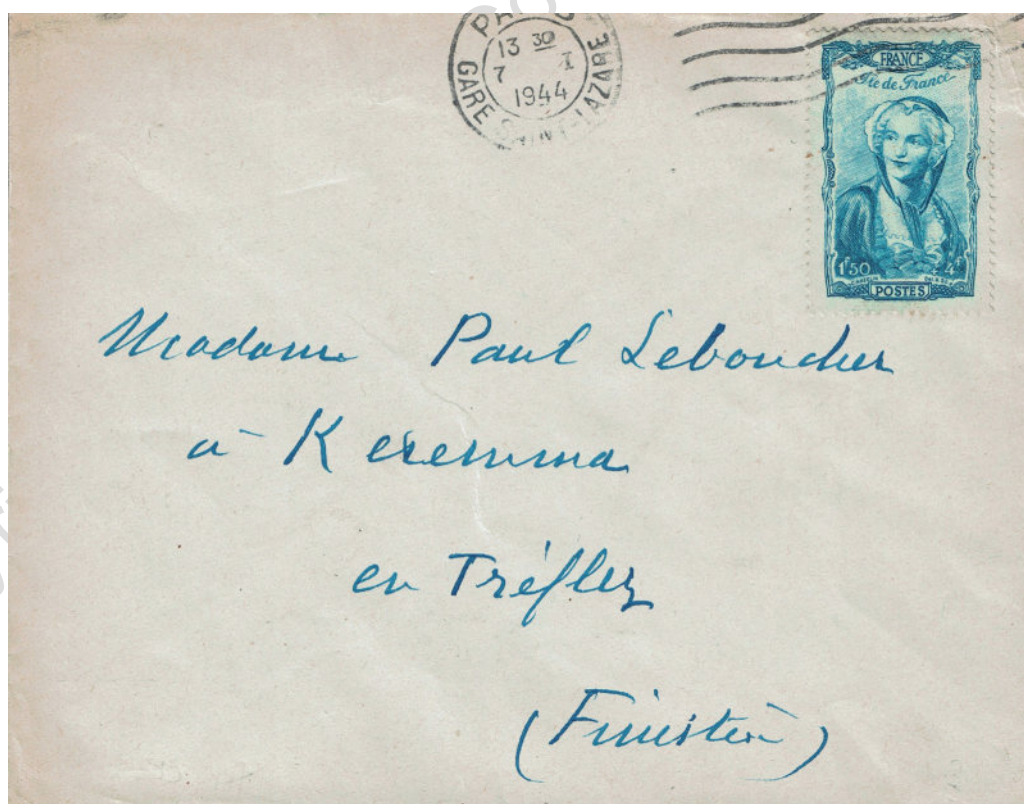 PARIS
13 30
7 I
1944
GARE SAINT-LAZARE
FRANCE
Ile de France
1F50
+4F
POSTES
Madame Paul Leboucher
à Keremma
en Tréflez
(Finistère)